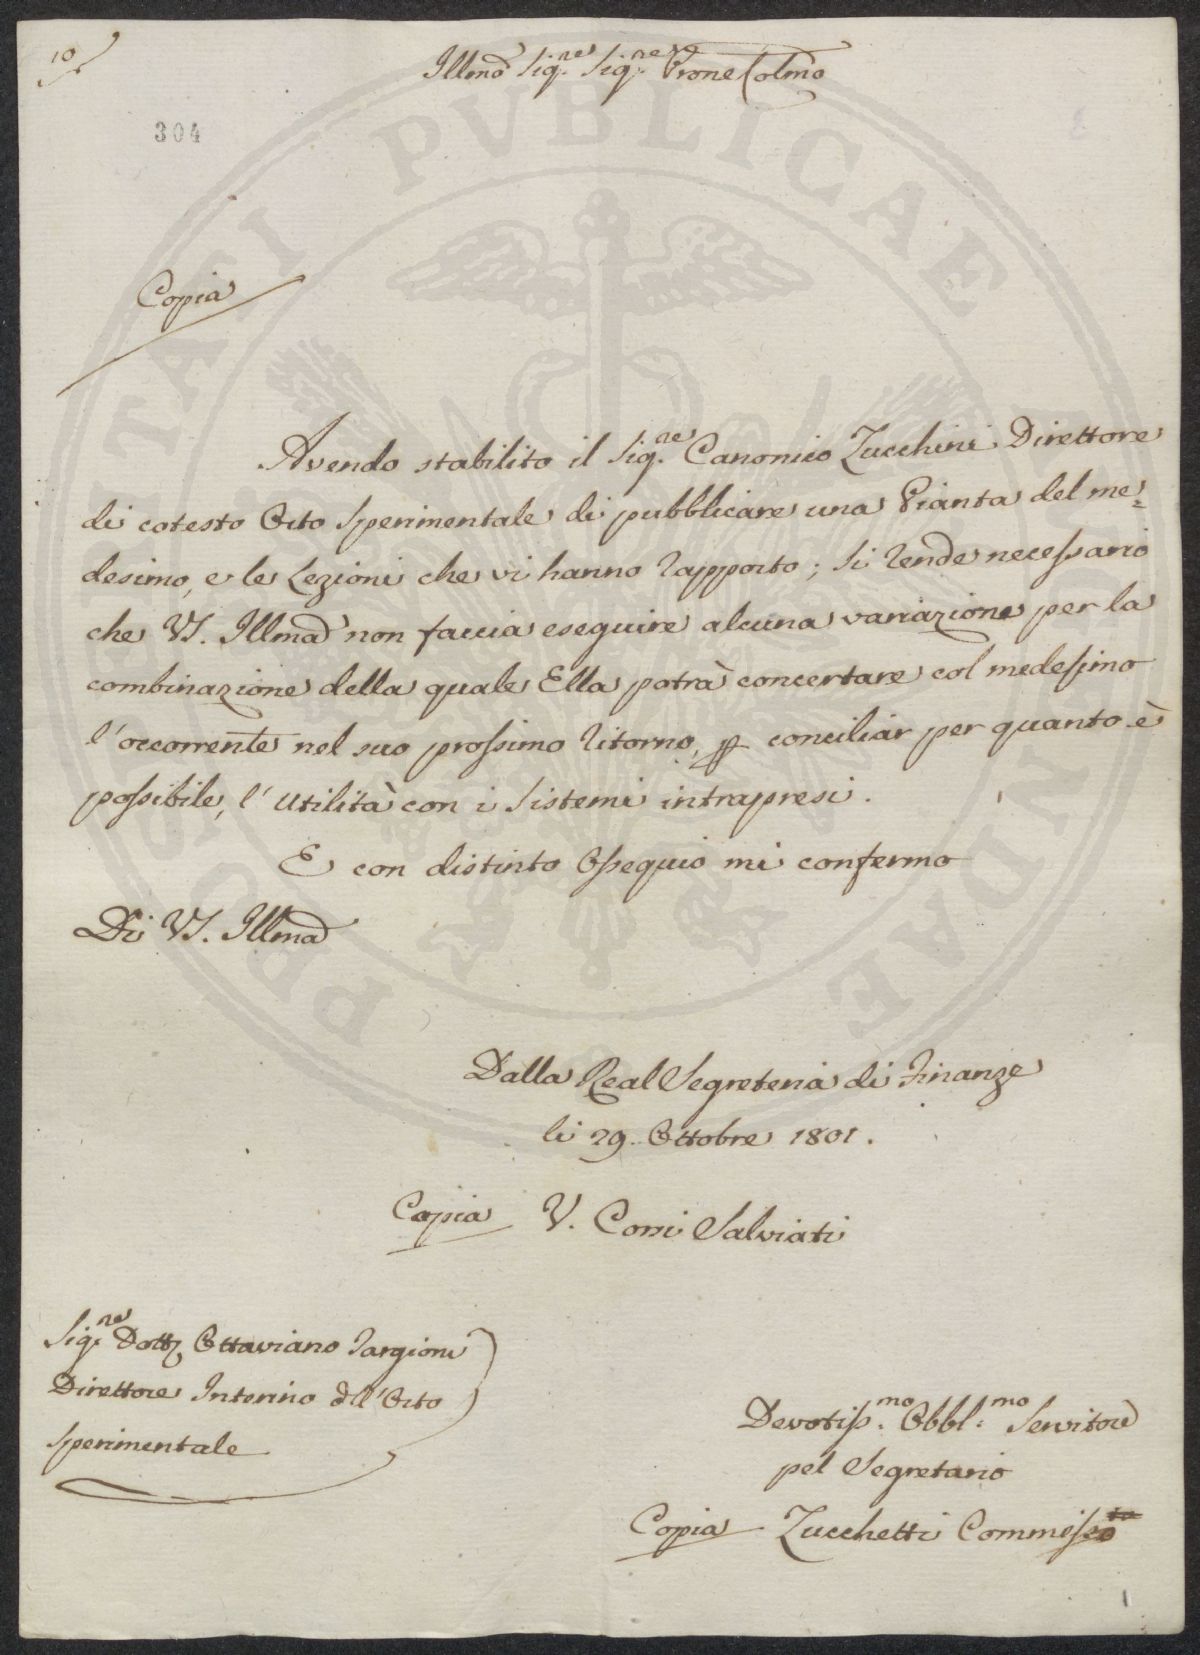 10
Illmo Sig.re Sig.re Prone Colmo
304
Copia
Avendo stabilito il Sig.re Canonico Zucchini Direttore
di cotesto Orto Sperimentale di pubblicare una Pianta del me=
desimo, e le Lezioni che vi hanno rapporto; si rende necessario
che VS. Illma non faccia eseguire alcuna variazione per la
combinazione della quale Ella potrà concertare col medesimo
l'occorrente nel suo prossimo ritorno, p conciliar per quanto è
possibile, l'utilità con i sistemi intrapresi.
E con distinto Ossequio mi confermo
Di VS. Illma
Dalla Real Segreteria di Finanze
li 29. Ottobre 1801.
Copia V. Corsi Salviati
Sig.re Dott. Ottaviano Targioni
Direttore Interino dell'Orto
Sperimentale
Devotiss.mo Obbl.mo Servitore
pel Segretario
Copia Zucchetti Commesso
PROSPERITATI PVBLICAE PROVIDAE